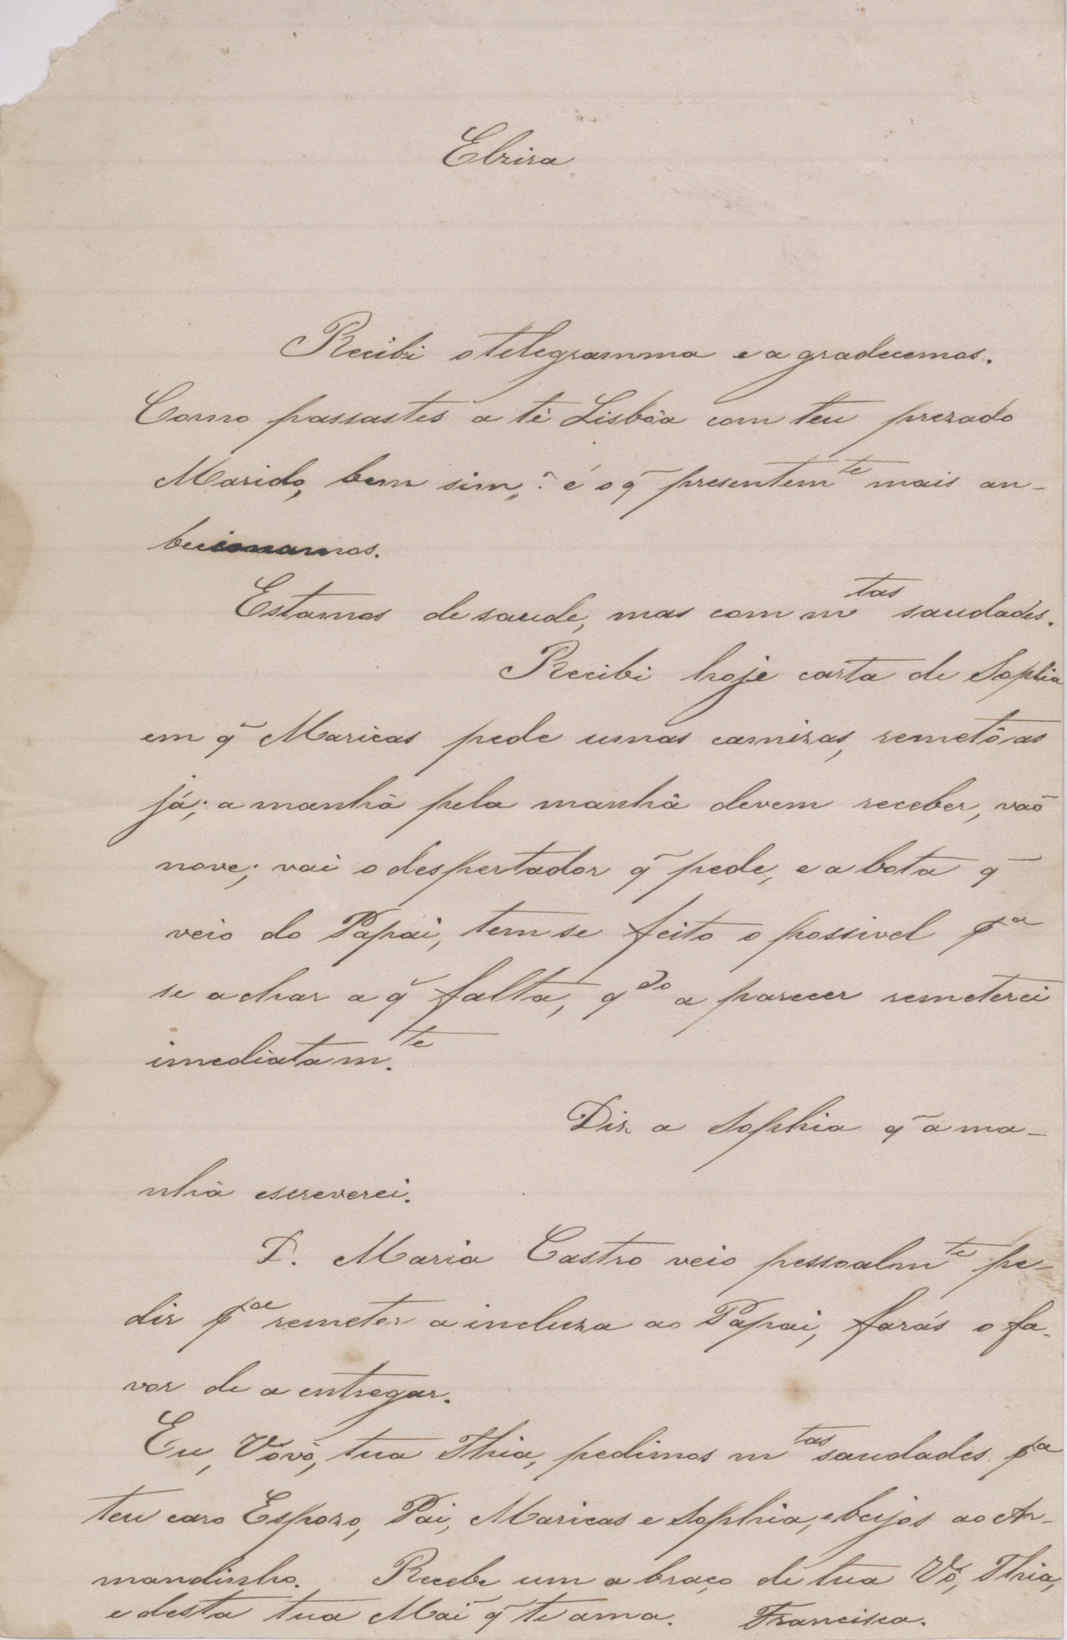 Elzira
Recibi o telegramma e agradecemos.
Como passastes a té Lisbôa com teu prezado
Marido, bem sim,? é o q̃ presentemte mais an-
becionamos.
Estamos de saude, mas com mtas saudades.
Recibi hoje carta de Sophia
em q̃ Maricas pede umas camizas, remetô-as
já; a manhã pela manhã devem receber, vaõ
nove; vai o despertador q̃ pede, e a bota q̃
veio do Papai, tem se feito o possivel pa
se achar a q̃ falta, qdo a parecer remeterei
imediatam.te
Diz a Sophia q̃ a ma-
nhã escreverei.
D. Maria Castro veio pessoalmte pe-
dir pa remeter a incluza ao Papai, farás o fa-
vor de a entregar.
Eu, Vóvó, tua Thia, pedimos mtas saudades pa
teu caro Espozo, Pai, Maricas e Sophia, e beijos ao Ar-
mandinho. Recebe um abraço de tua Vó, Thia,
e desta tua Mai q̃ te ama. Francisca.